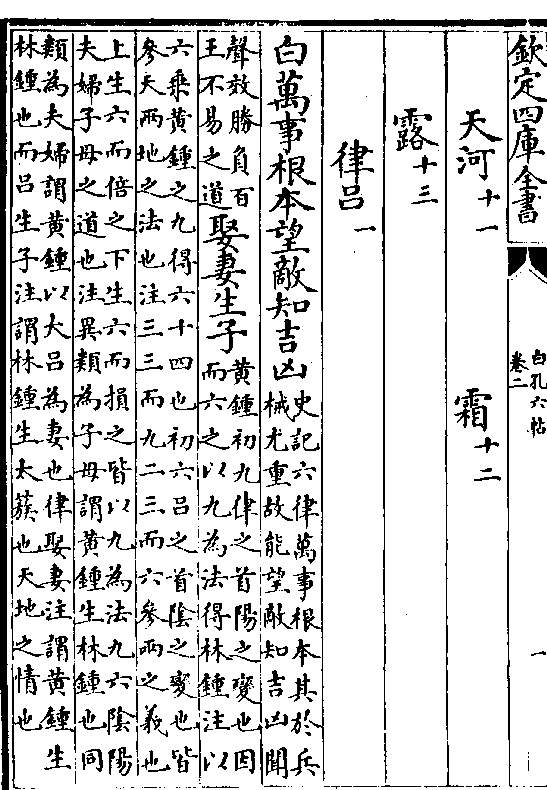 欽定四庫全書
白孔六帖
卷二
一
天河十一 霜十二
露十三
律吕一
白萬事根本望敵知吉凶
史記六律萬事根本其於兵
械尤重故能望敵知吉凶聞
聲效勝負百
王不易之道
娶妻生子
黄鍾初九律之首陽之變也因
而六之以九為法得林鍾注以
六乘黄鍾之九得六十四也初六吕之首陰之變也皆
參天兩地之法也注三三而九二三而六參兩之義也
上生六而倍之下生六而損之皆以九為法九六陰陽
夫婦子母之道也注異類為子母謂黄鍾生林鍾也同
類為夫婦謂黄鍾以大吕為妻也律娶妻注謂黄鍾生
林鍾也而吕生子注謂林鍾生太蔟也天地之情也